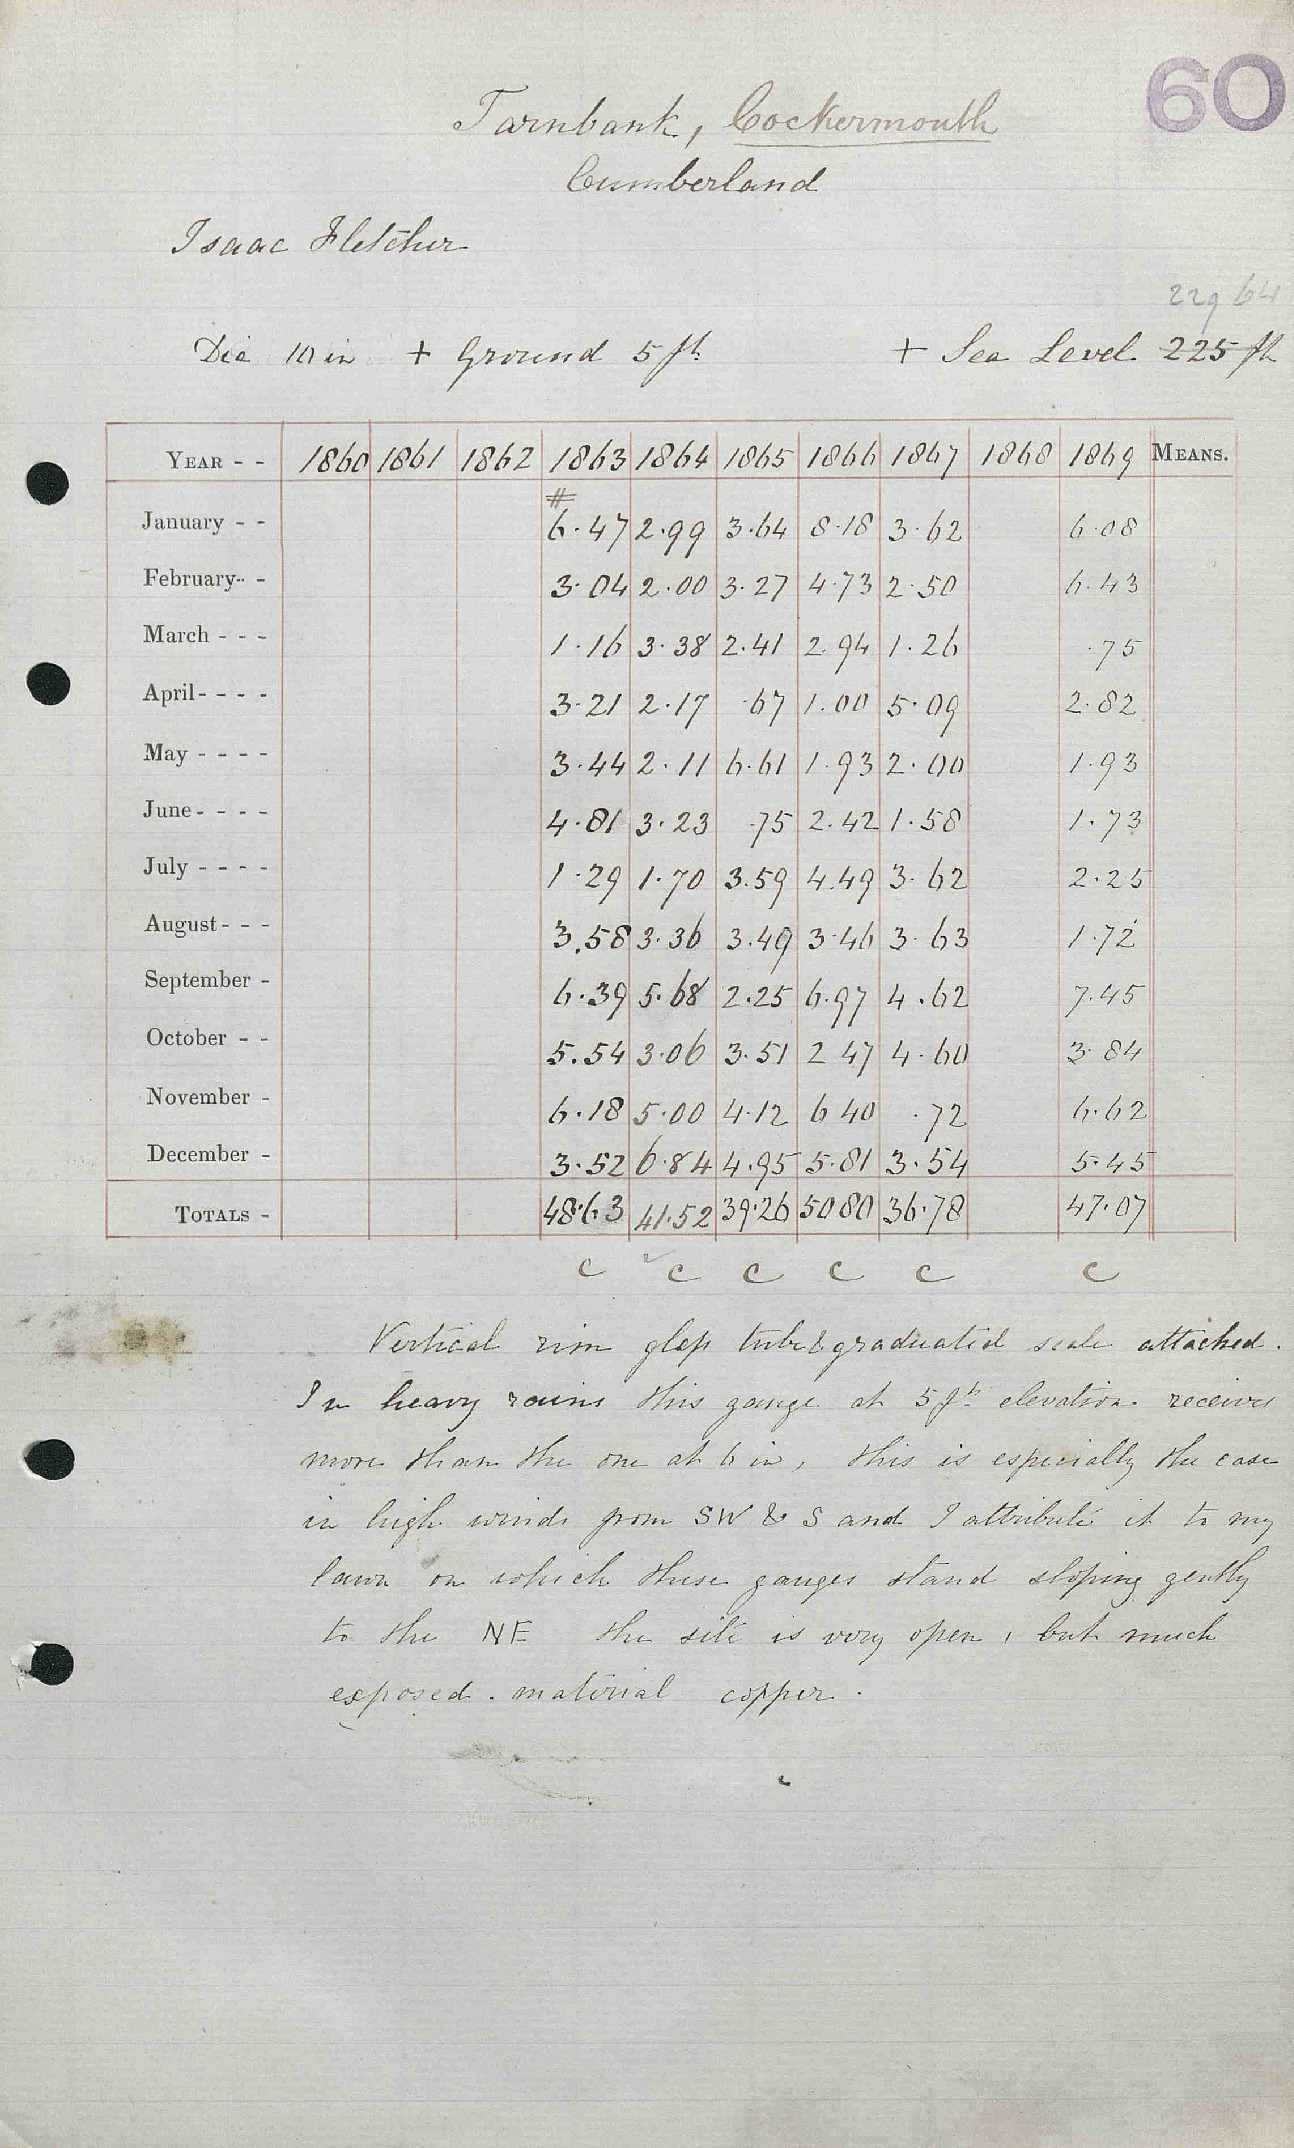 60
Tarnbank, Cockermouth
Cumberland
Isaac Fletcher
229 64
Dia 10 in + Ground 5 ft + Sea Level 225 ft
YEAR - - 1860 1861 1862 1863 1864 1865 1866 1867 1868 1869 MEANS.
#
January - - 6.47 2.99 3.64 8.18 3.62 6.08
February - - 3.04 2.00 3.27 4.73 2.50 6.43
March - - - 1.16 3.38 2.41 2.94 1.26 .75
April - - - - 3.21 2.17 .67 1.00 5.09 2.82
May - - - - 3.44 2.11 6.61 1.93 2.00 1.93
June - - - - 4.81 3.23 .75 2.42 1.58 1.73
July - - - - 1.29 1.70 3.59 4.49 3.62 2.25
August - - - 3.58 3.36 3.49 3.46 3.63 1.72
September - 6.39 5.68 2.25 6.97 4.62 7.45
October - - 5.54 3.06 3.51 2 47 4.60 3.84
November - 6.18 5.00 4.12 6 40 .72 6.62
December - 3.52 6.84 4.95 5.81 3.54 5.45
TOTALS - 48.63 41.52 39.26 50 80 36.78 47.07
c c c c c c
Vertical rim glass tube & graduated scale attached.
In heavy rains this gauge at 5 ft elevation receives
more than the one at 6 in, this is especially the case
in high winds from SW & S and I attribute it to my
lawn on which these gauges stand sloping gently
to the NE the site is very open, but much
exposed. material copper.